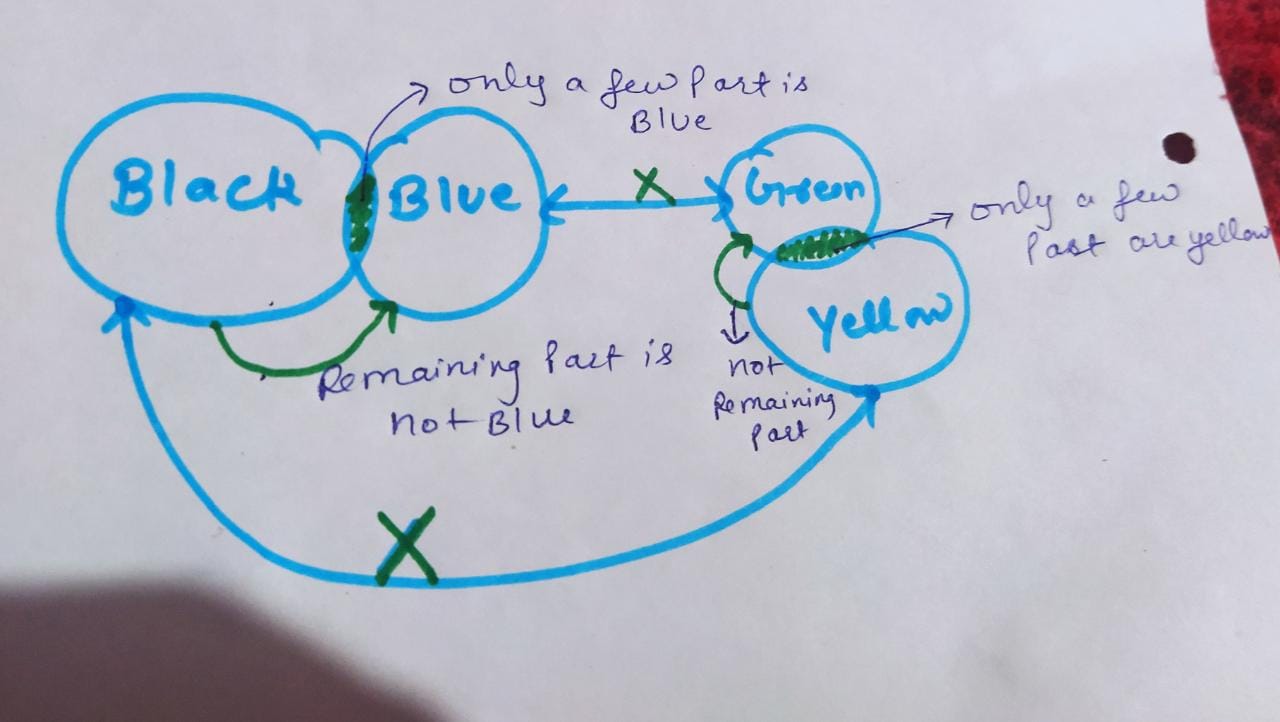 only a few Part is
Blue
Black
Blue
X
Green
only a few
Part are yellow
Yellow
Remaining Part is
not Blue
not
Remaining
Part
X